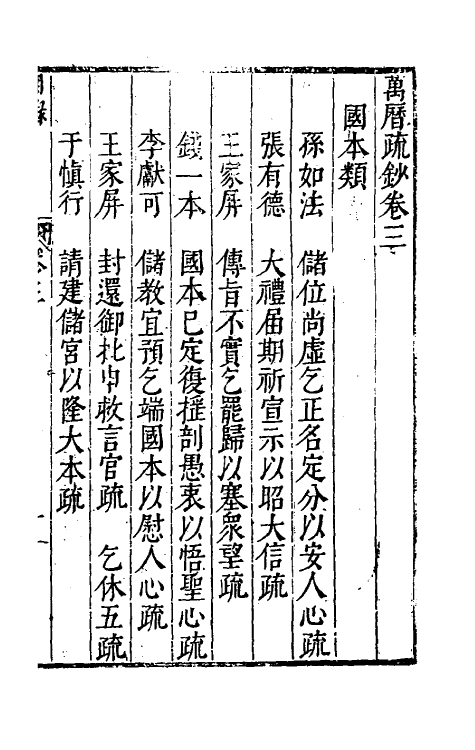 萬曆疏鈔卷三
國本類
孫如法 儲位尚虛乞正名定分以安人心疏
張有德 大禮届期祈宣示以昭大信疏
王家屏 傳旨不實乞罷歸以塞衆望疏
錢一本 國本已定復摇剖愚衷以悟聖心疏
李獻可 儲教宜預乞端國本以慰人心疏
王家屏 封還御批申救言官疏 乞休五疏
于慎行 請建儲宮以隆大本疏
目錄 卷三 一